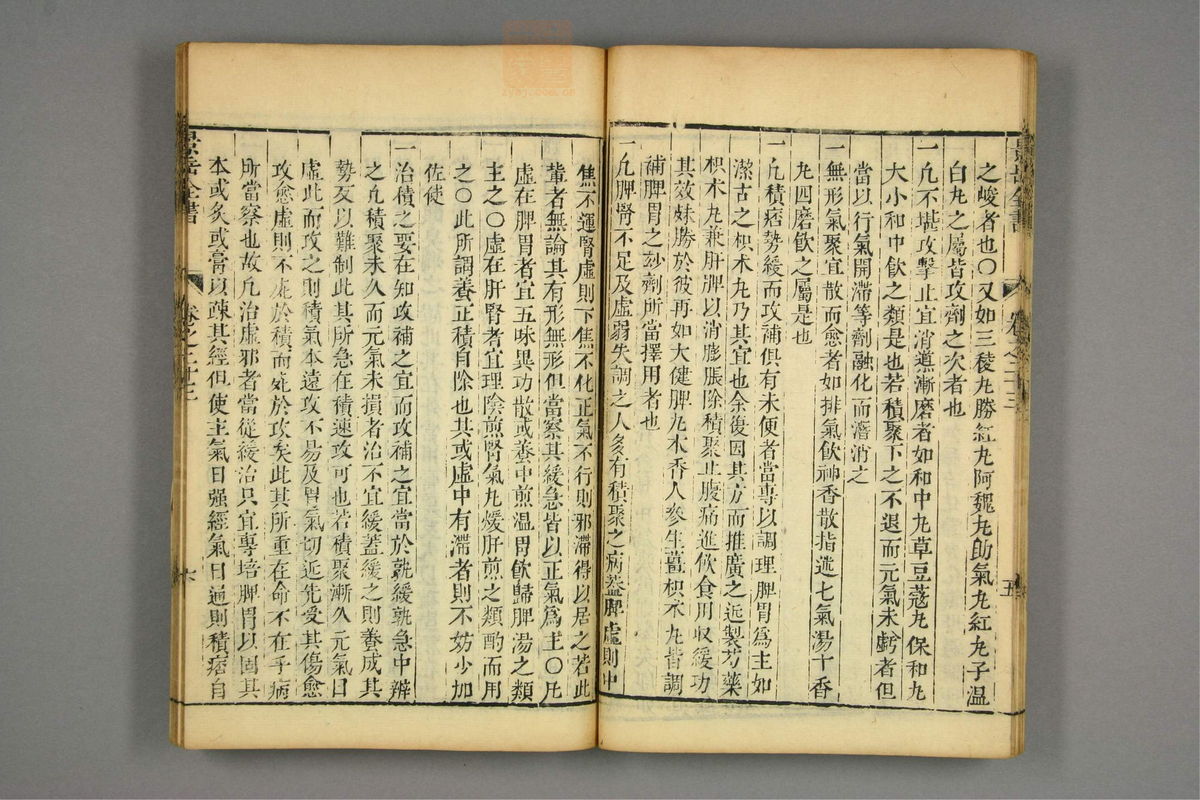 之峻者也○又如三稜丸勝紅丸阿魏丸助氣丸紅丸子溫
白丸之屬皆攻劑之次者也
一凡不堪攻擊止宜消導漸磨者如和中丸草豆蔻丸保和丸
大小和中飲之類是也若積聚下之不退而元氣未虧者但
當以行氣開滯等劑融化而潛消之
一無形氣聚宜散而愈者如排氣飲神香散指迷七氣湯十香
丸四磨飲之屬是也
一凡積痞勢緩而攻補俱有未便者當專以調理脾胃爲主如
潔古之枳朮丸乃其宜也余復因其方而推廣之近製芍藥
枳朮丸兼肝脾以消膨脹除積聚止腹痛進飲食用収緩功
其效殊勝於彼再如大健脾丸木香人參生薑枳朮丸皆調
補脾胃之妙劑所當擇用者也
一凡脾腎不足及虛弱失調之人多有積聚之病蓋脾虛則中
焦不運腎虛則下焦不化正氣不行則邪滯得以居之若此
輩者無論其有形無形但當察其緩急皆以正氣爲主○凡
虛在脾胃者宜五味異功散或養中煎溫胃飲歸脾湯之類
主之○虛在肝腎者宜理陰煎腎氣丸煖肝煎之類酌而用
之○此所調養正積自除也其或虛中有滯者則不妨少加
佐使
一治積之要在知攻補之宜而攻補之宜當於孰緩孰急中辨
之凡積聚未久而元氣未損者治不宜緩蓋緩之則養成其
勢反以難制此其所急在積速攻可也若積聚漸久元氣日
虛此而攻之則積氣本遠攻不易及胃氣切近先受其傷愈
攻愈虛則不死於積而死於攻矣此其所重在命不在乎病
所當察也故凡治虛邪者當從緩治只宜專培脾胃以固其
本或灸或膏以疎其經但使主氣日強經氣日通則積痞自
景岳全書
卷之二十三
五
景岳全書
卷之二十三
六